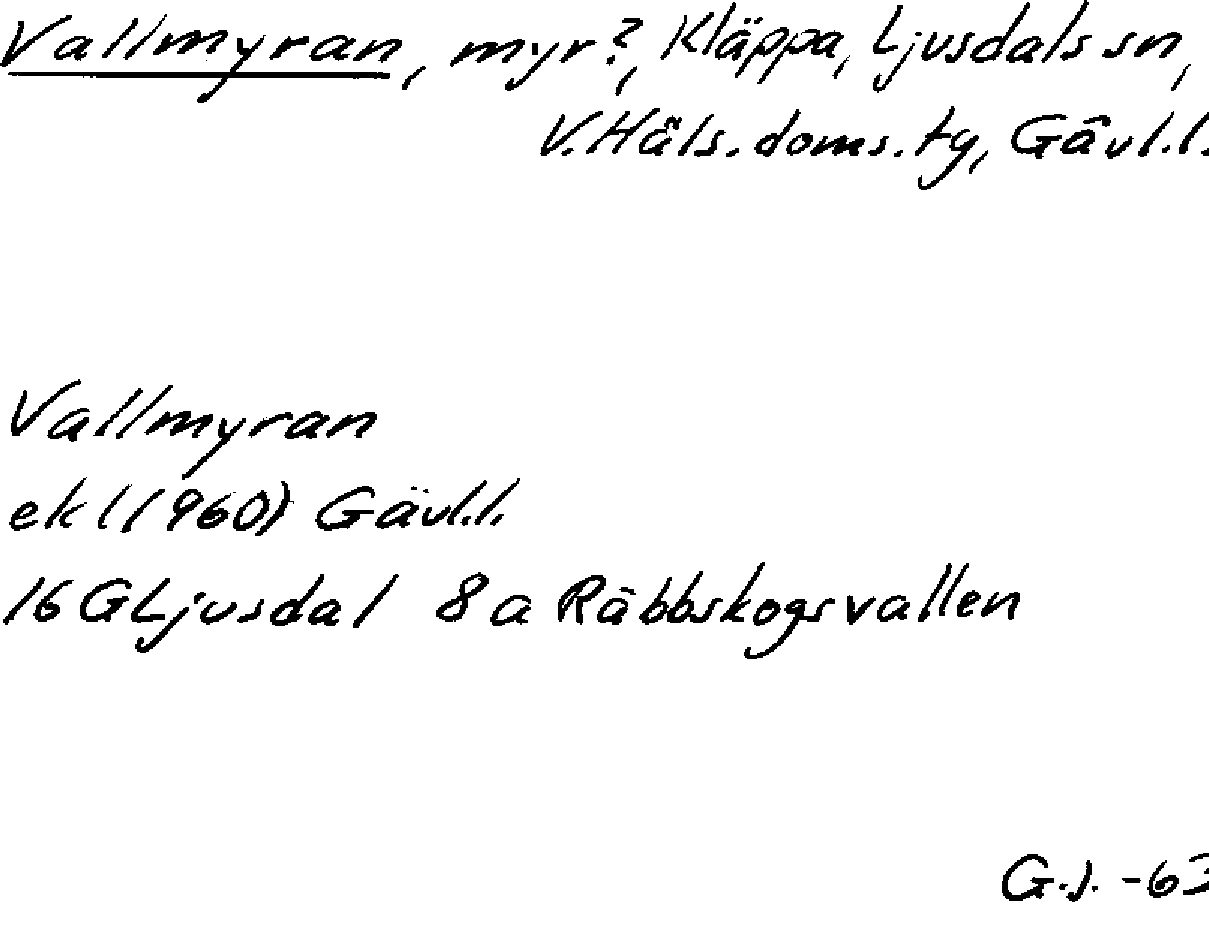 Vallmyran, myr?, Kläppa, Ljusdals sn,
V. Häls. doms. ty, Gävl.l.
Vallmyran
ekl (1960) Gävl.l.
16G Ljusdal 8a Räbbskogsvallen
G.J. -63